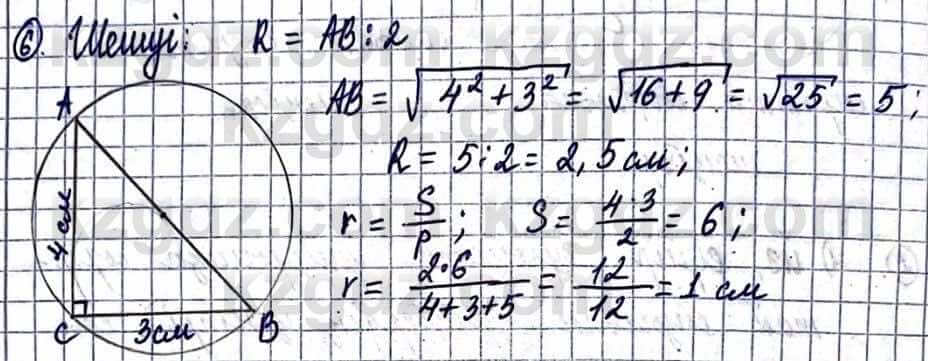 ⑥. Шешуі: R = AB : 2
AB = √(4² + 3²) = √(16 + 9) = √25 = 5;
R = 5 : 2 = 2,5 см;
r = S/p; S = (4·3)/2 = 6;
r = (2·6)/(4+3+5) = 12/12 = 1 см
A
4 см
C
3 см
B
kzgdz.com